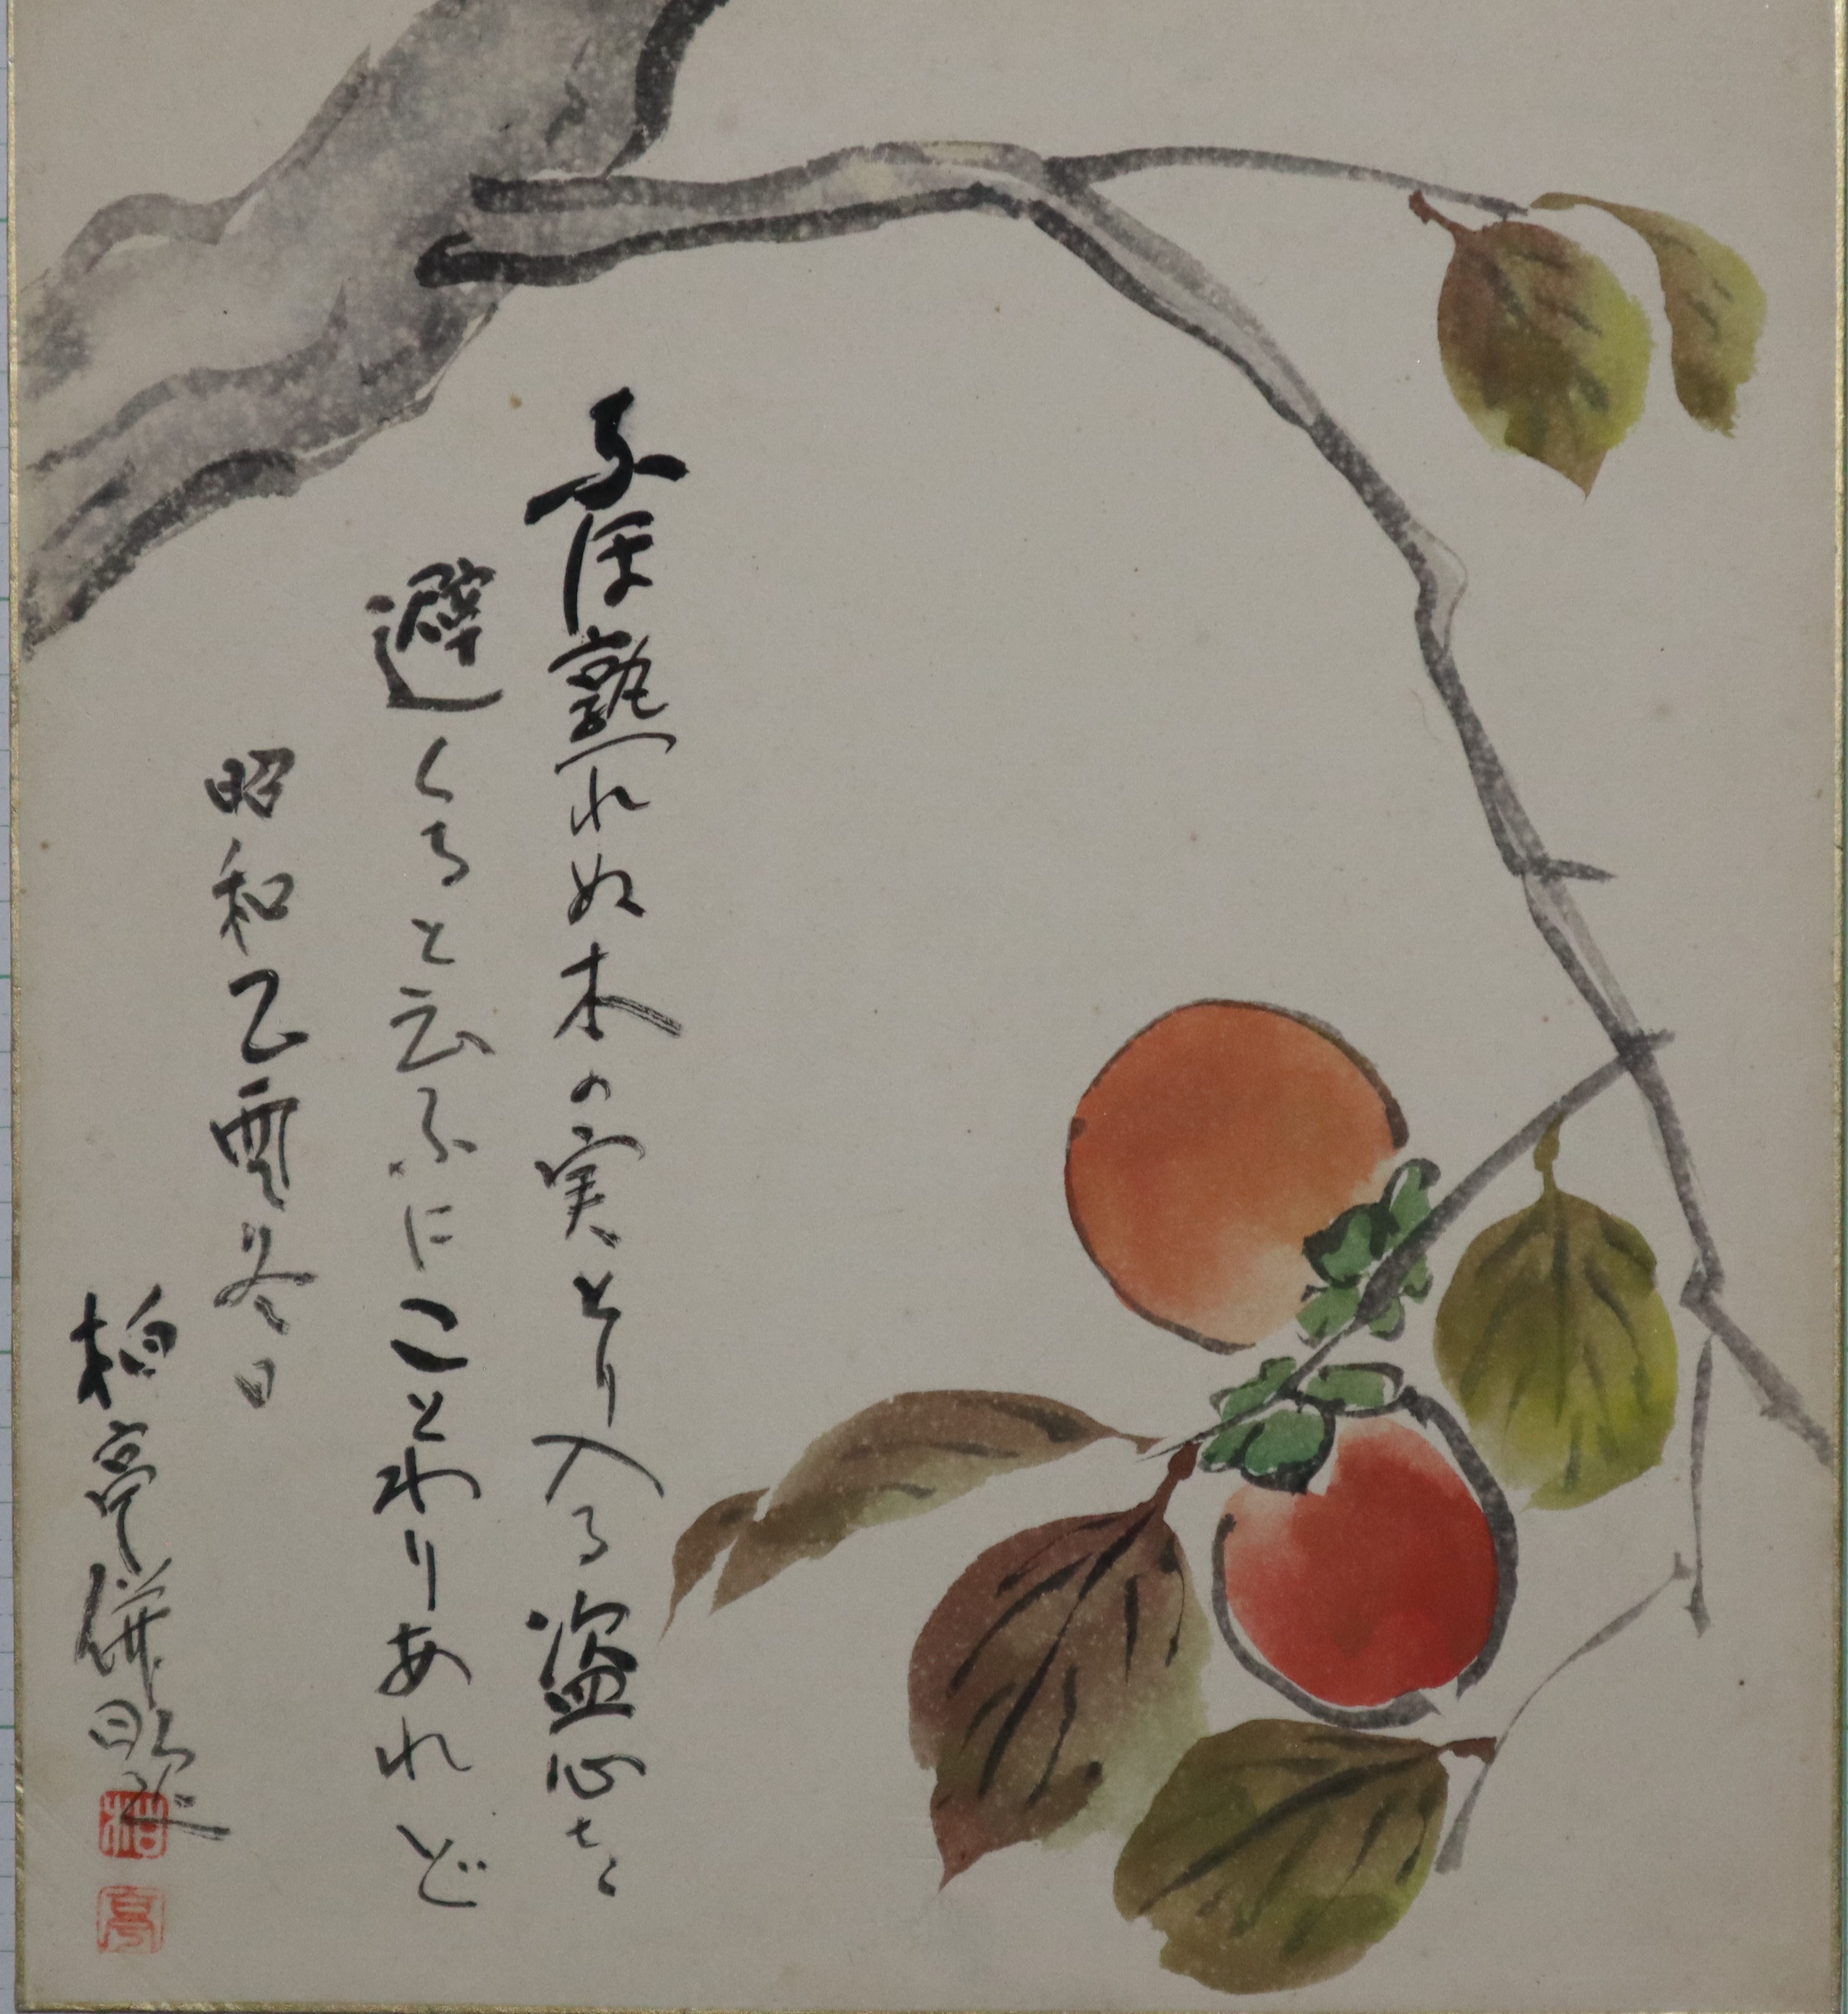 なほ熟れぬ木の実とり入る盗心を
避くると云ふにことわりあれど
昭和乙酉冬日
柏亭併題
柏
亭